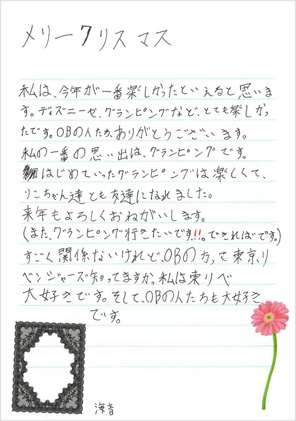 メリークリスマス
私は、今年が一番楽しかったといえると思いま
す。ディズニーや、グランピングなど、とても楽しかっ
たです。OBの人たち、ありがとうございます。
私の一番の思い出は、グランピングです。
はじめていったグランピングは楽しくて、
りこちゃん達とも友達になれました。
来年もよろしくおねがいします。
(また、グランピング行きたいです!!。できればです)
すごく関係ないけれど、OBの方って東京リ
ベンジャーズ知ってますか。私は東リべ
大好きです。そして、OBの人たちも大好き
です。
海音